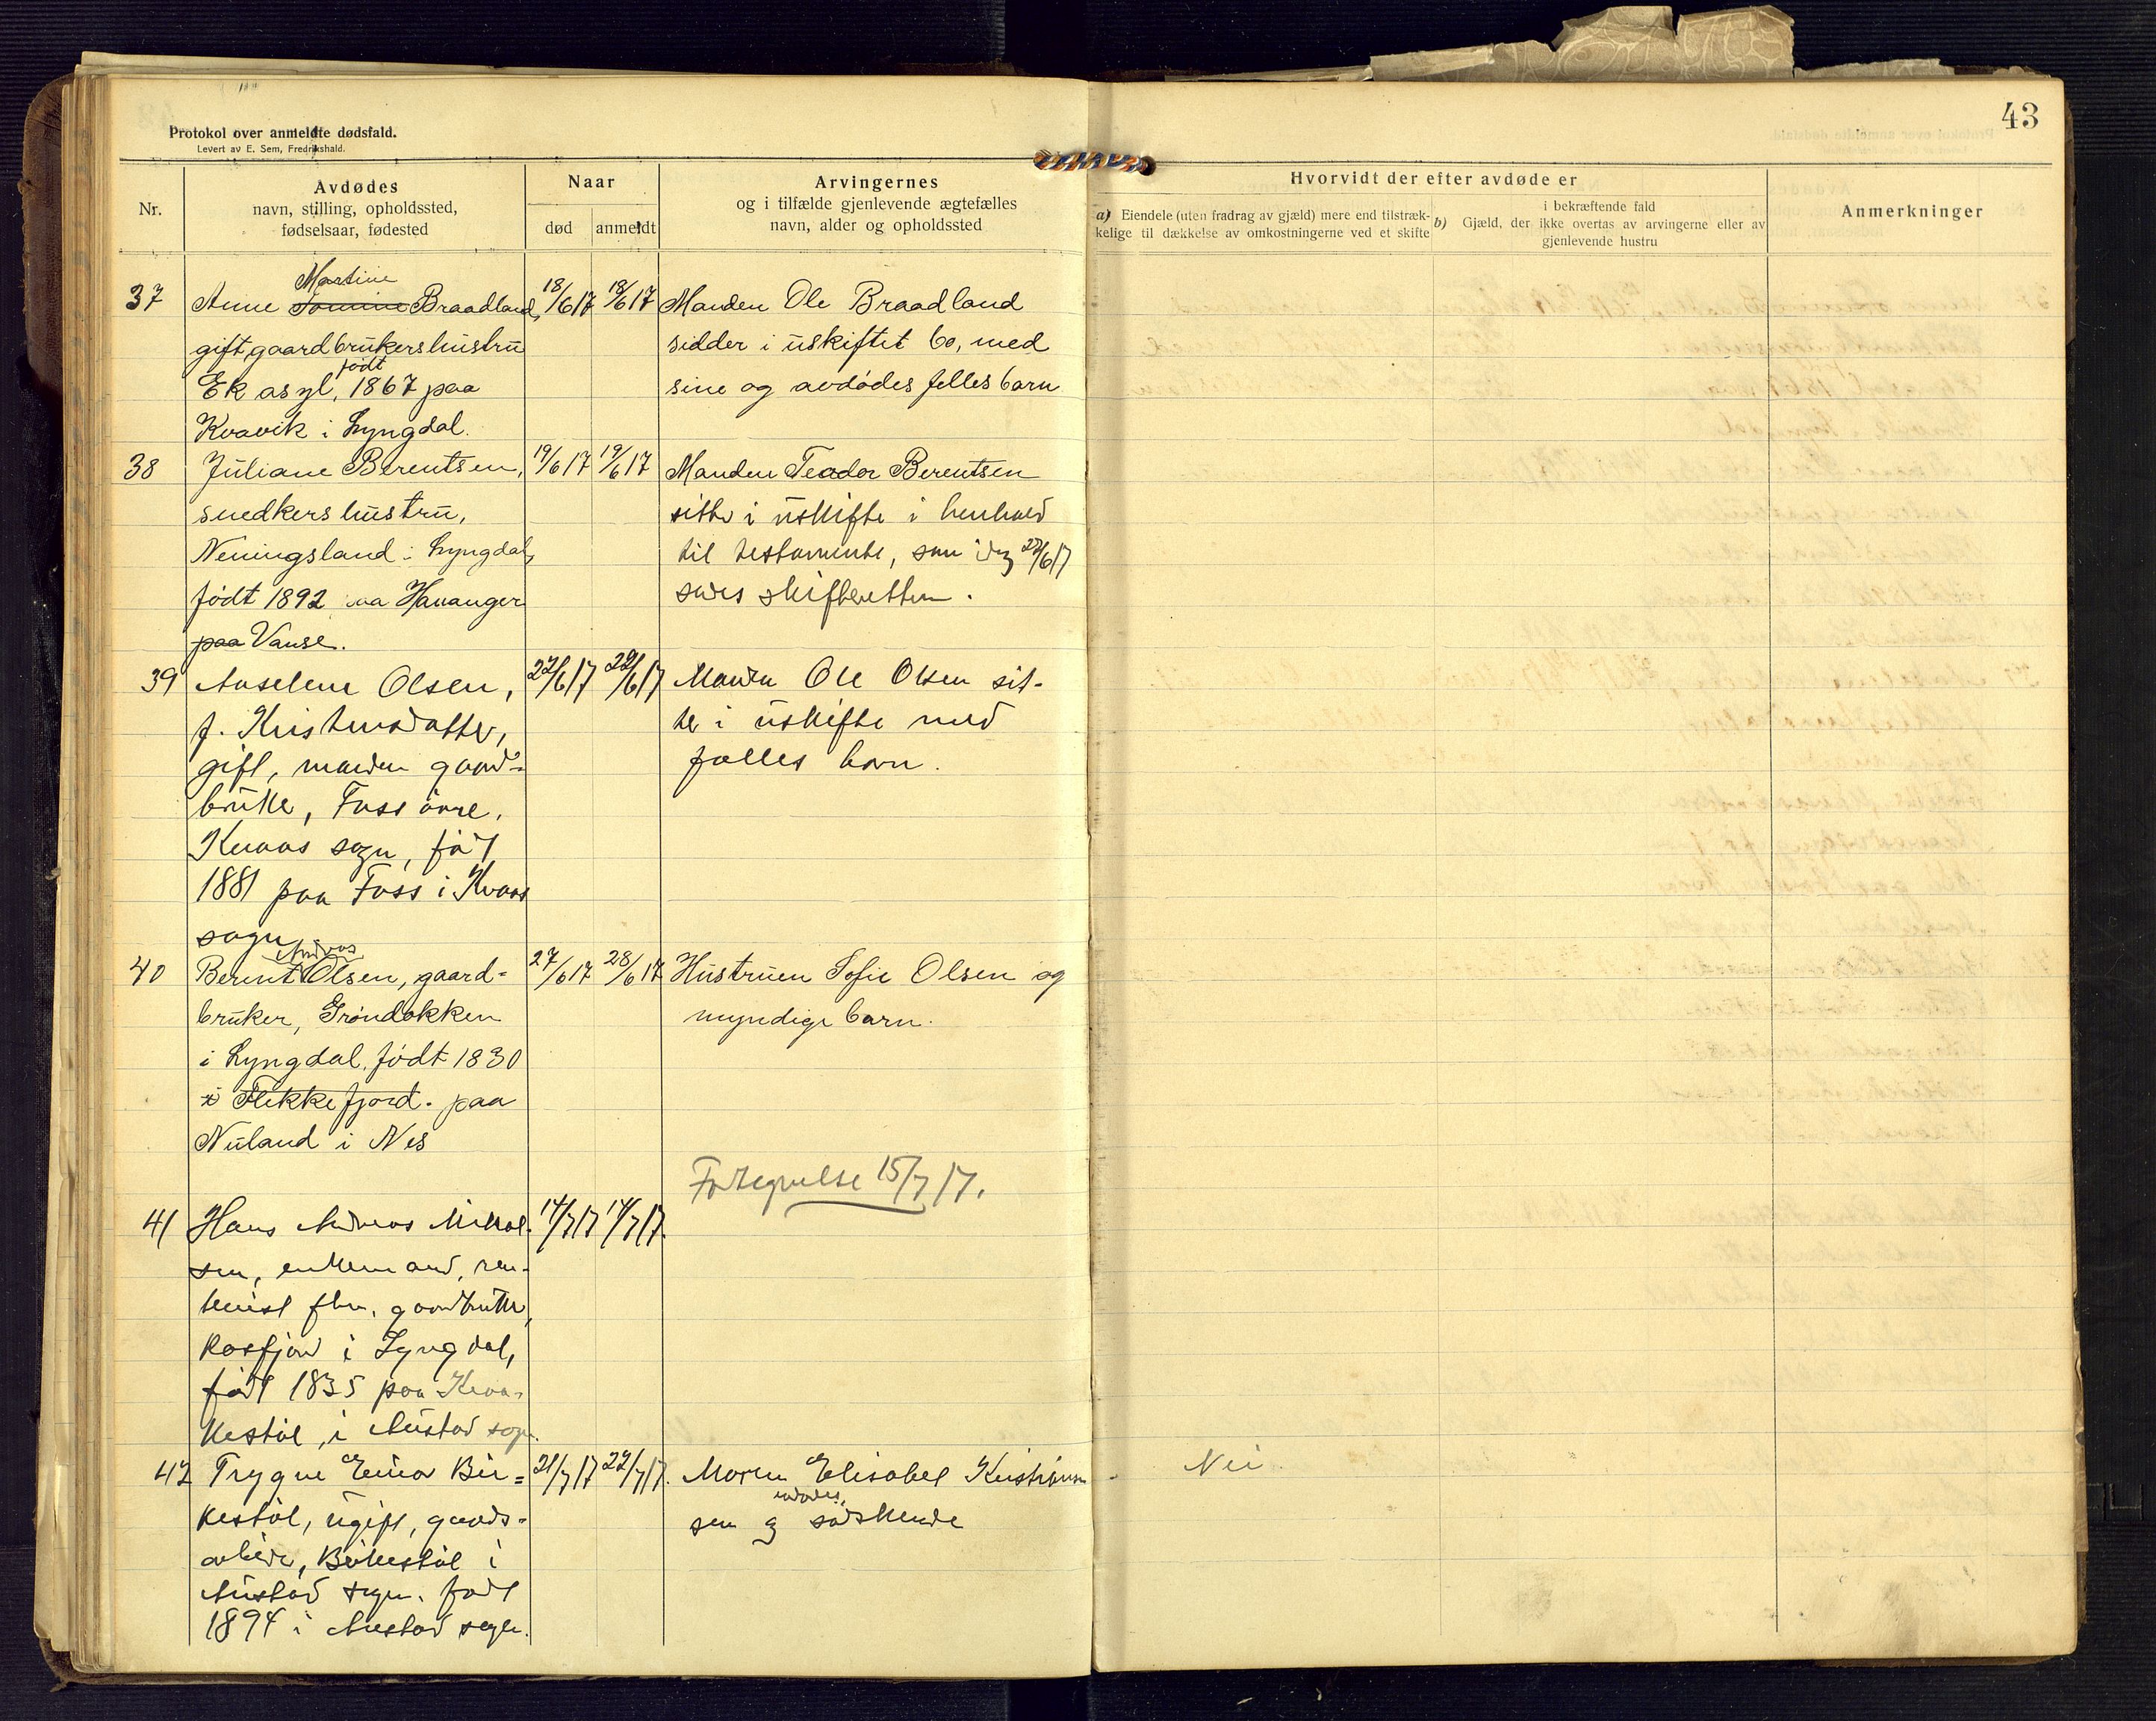 43
Protokol over anmeldte dødsfald.
Levert av E. Sem, Fredrikshald.
Nr.
Avdødes
navn, stilling, opholdssted,
fødselsaar, fødested
Naar
død
anmeldt
Arvingernes
og i tilfælde gjenlevende ægtefælles
navn, alder og opholdssted
Hvorvidt der efter avdøde er
a) Eiendele (uten fradrag av gjæld) mere end tilstræk-
kelige til dækkelse av omkostningerne ved et skifte
b) Gjæld, der
i bekræftende fald
ikke overtas av arvingerne eller av
gjenlevende hustru
Anmerkninger
Martine
37 Anne Braadland, 18/6 17 18/6 17 Manden Ole Braadland
gift, gaardbrukershustru sidder i uskiftet bo, med
født
Ek asyl, 1867 paa sine og avdødes felles barn
Kvavik i Lyngdal.
38 Juliane Berentsen, 19/6 17 19/6 17 Manden Teodor Berentsen
snedkershustru, sitter i uskifte i henhold
Neningsland i Lyngdal, til testamente, som idag 22/6 17
født 1892 paa Hananger skifteretten.
paa Vanse.
39 Anselene Olsen, 22/6 17 22/6 17 Manden Ole Olsen sit-
f. Kristensdatter, ter i uskifte med
gift, manden gaard- fælles barn.
bruker, Foss övre,
Kvaas sogn, född
1881 paa Foss i Kvaas
sogn
Andreas
40 Berent Olsen, gaard= 27/6 17 28/6 17 Hustruen Sofie Olsen og
bruker, Grøndokken myndige barn.
i Lyngdal, født 1830
i Flekkefjord. paa
Nuland i Nes
Forsegnelse 15/7 17.
41 Hans Andreas Mikkel- 14/7 17 14/7 17.
sen, enkemand, ren-
tenist fhv. gaardbruker,
Rosfjord i Lyngdal,
født 1835 paa
i Austad sogn.
42 Trygve Einar Bir= 21/7 17 22/7 17. Moren Elisabet Kristiansen - Nei.
kestøl, ugift, gaards- sen og søskende
arbeider, Birkestøl i
Austad sogn. født
1894 i Austad sogn.